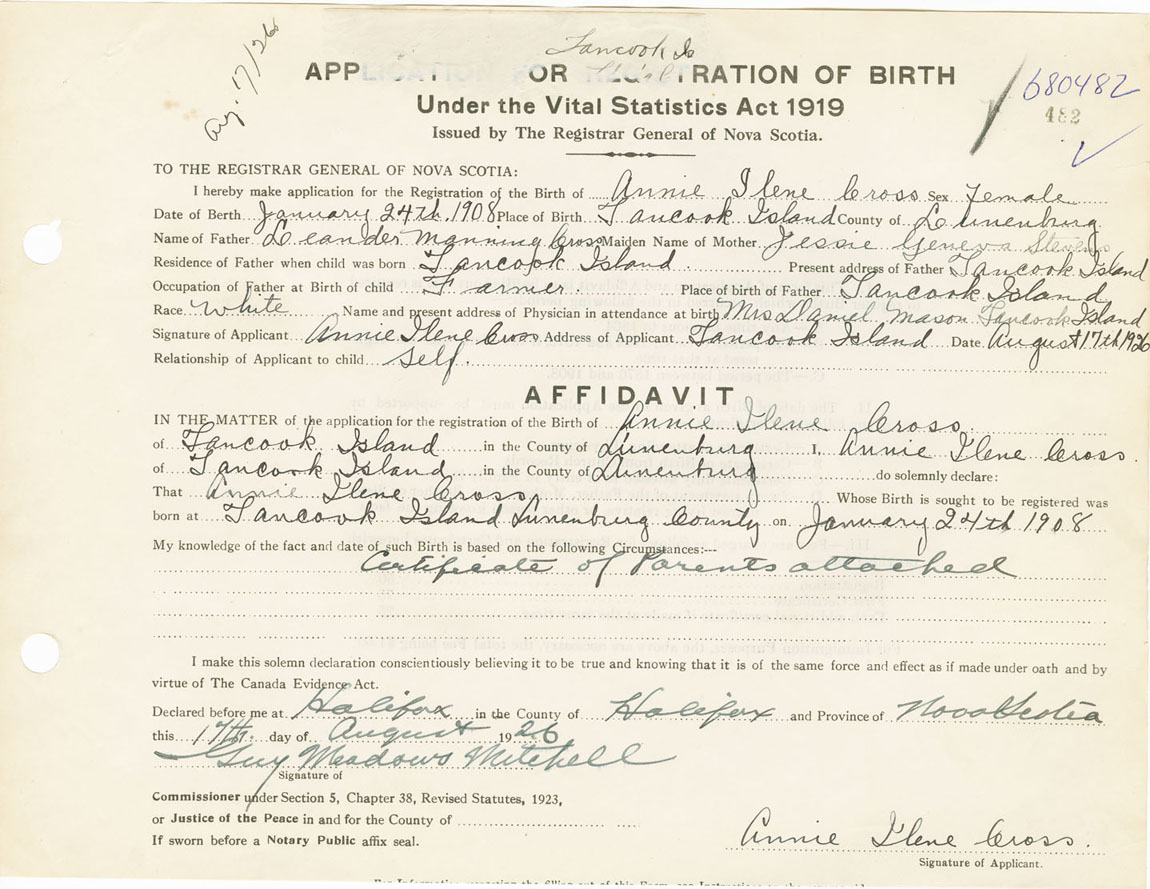 Tancook Is
Aug. 17/26
APPLICATION FOR REGISTRATION OF BIRTH
680482
Under the Vital Statistics Act 1919
482
Issued by The Registrar General of Nova Scotia.
TO THE REGISTRAR GENERAL OF NOVA SCOTIA:
I hereby make application for the Registration of the Birth of Annie Ilene Cross Sex Female
Date of Berth January 24th, 1908 Place of Birth Tancook Island County of Lunenburg
Name of Father Leander Manning Cross Maiden Name of Mother Jessie Geneva Stevens
Residence of Father when child was born Tancook Island. Present address of Father Tancook Island
Occupation of Father at Birth of child Farmer Place of birth of Father Tancook Island
Race White Name and present address of Physician in attendance at birth Mrs Daniel Mason Tancook Island
Signature of Applicant Annie Ilene Cross Address of Applicant Tancook Island Date August 17th 1926
Relationship of Applicant to child Self.
AFFIDAVIT
IN THE MATTER of the application for the registration of the Birth of Annie Ilene Cross
of Tancook Island in the County of Lunenburg I, Annie Ilene Cross.
of Tancook Island in the County of Lunenburg do solemnly declare:
That Annie Ilene Cross, Whose Birth is sought to be registered was
born at Tancook Island Lunenburg County on January 24th 1908
My knowledge of the fact and date of such Birth is based on the following Circumstances:---
Certificate of Parents attached
I make this solemn declaration conscientiously believing it to be true and knowing that it is of the same force and effect as if made under oath and by
virtue of The Canada Evidence Act.
Declared before me at Halifax in the County of Halifax and Province of Nova Scotia
this 17th. day of August 1926
Guy Meadows Mitchell
Signature of
Commissioner under Section 5, Chapter 38, Revised Statutes, 1923,
or Justice of the Peace in and for the County of
If sworn before a Notary Public affix seal.
Annie Ilene Cross.
Signature of Applicant.